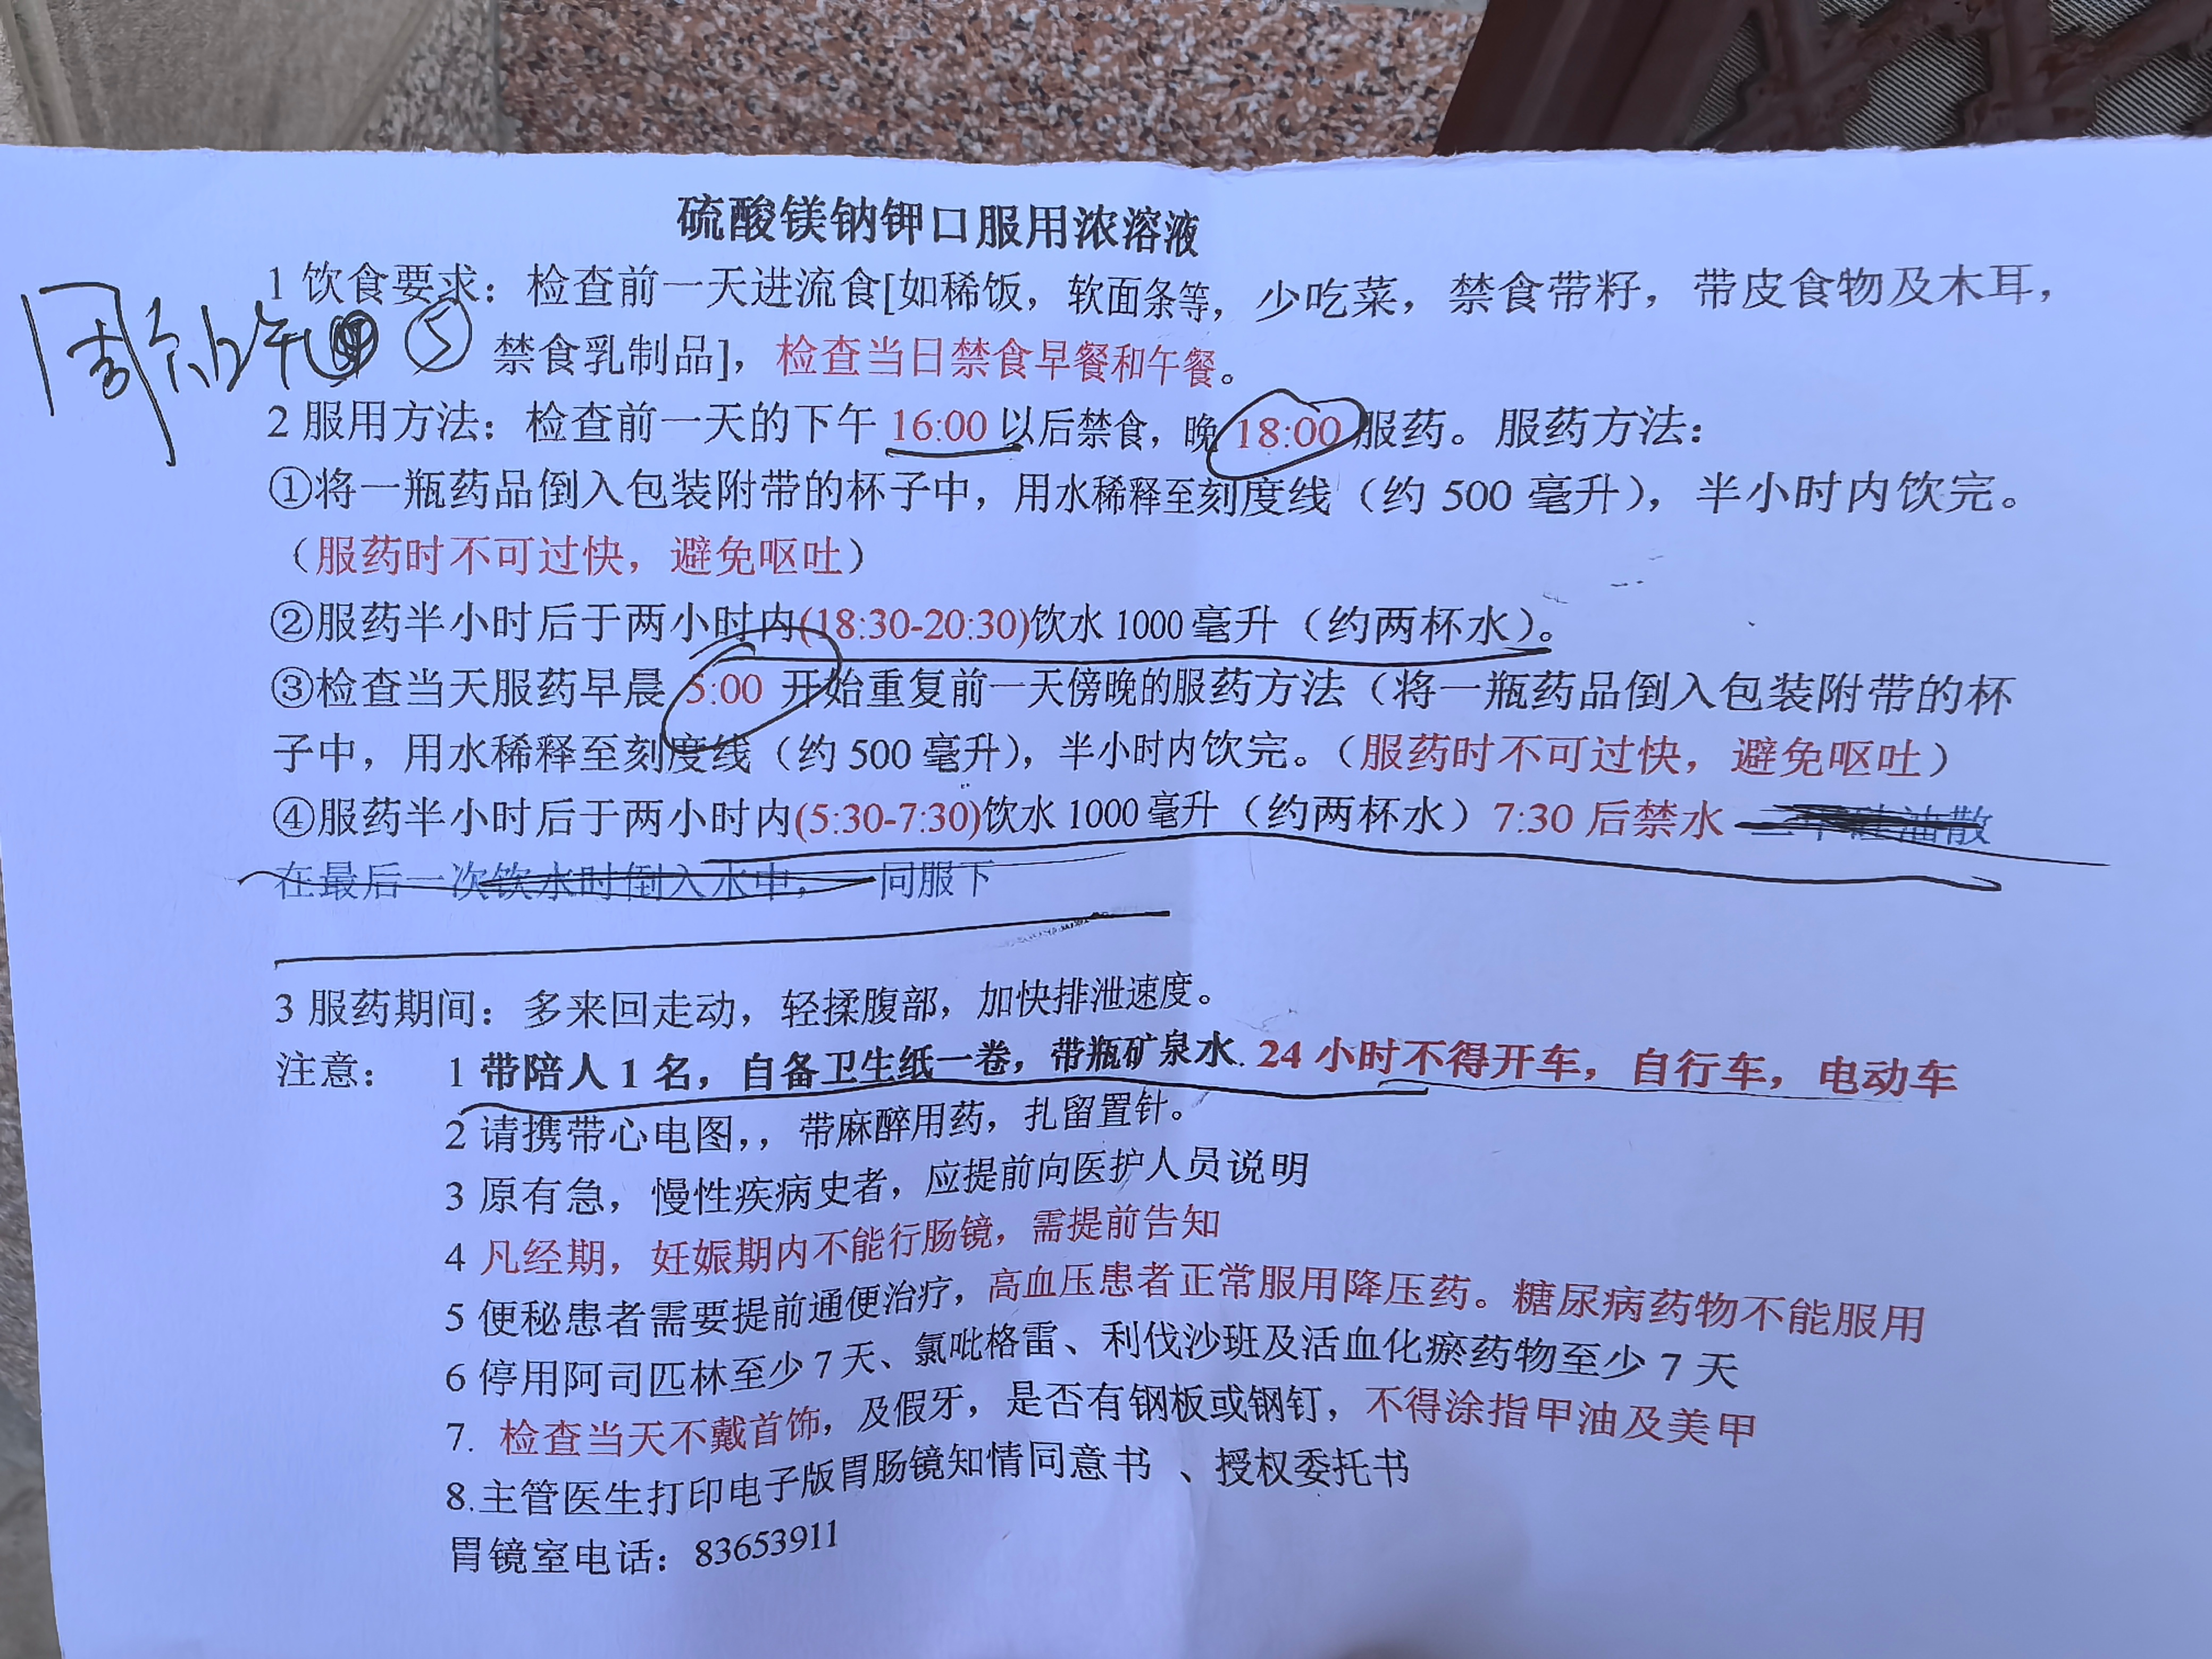 硫酸镁钠钾口服用浓溶液
1 饮食要求：检查前一天进流食[如稀饭，软面条等，少吃菜，禁食带籽，带皮食物及木耳，
周 午 ⑤
禁食乳制品]，检查当日禁食早餐和午餐。
2 服用方法：检查前一天的下午 16:00 以后禁食，晚 18:00 服药。服药方法：
①将一瓶药品倒入包装附带的杯子中，用水稀释至刻度线（约 500 毫升），半小时内饮完。
（服药时不可过快，避免呕吐）
②服药半小时后于两小时内(18:30-20:30)饮水 1000 毫升（约两杯水）。
③检查当天服药早晨 5:00 开始重复前一天傍晚的服药方法（将一瓶药品倒入包装附带的杯
子中，用水稀释至刻度线（约 500 毫升），半小时内饮完。（服药时不可过快，避免呕吐）
④服药半小时后于两小时内(5:30-7:30)饮水 1000 毫升（约两杯水）7:30 后禁水 油散
在最后一次饮水时倒入水中，一同服下
3 服药期间：多来回走动，轻揉腹部，加快排泄速度。
注意： 1 带陪人 1 名，自备卫生纸一卷，带瓶矿泉水. 24 小时不得开车，自行车，电动车
2 请携带心电图，，带麻醉用药，扎留置针。
3 原有急，慢性疾病史者，应提前向医护人员说明
4 凡经期，妊娠期内不能行肠镜，需提前告知
5 便秘患者需要提前通便治疗，高血压患者正常服用降压药。糖尿病药物不能服用
6 停用阿司匹林至少 7 天、氯吡格雷、利伐沙班及活血化瘀药物至少 7 天
7. 检查当天不戴首饰，及假牙，是否有钢板或钢钉，不得涂指甲油及美甲
8.主管医生打印电子版胃肠镜知情同意书 、授权委托书
胃镜室电话：83653911